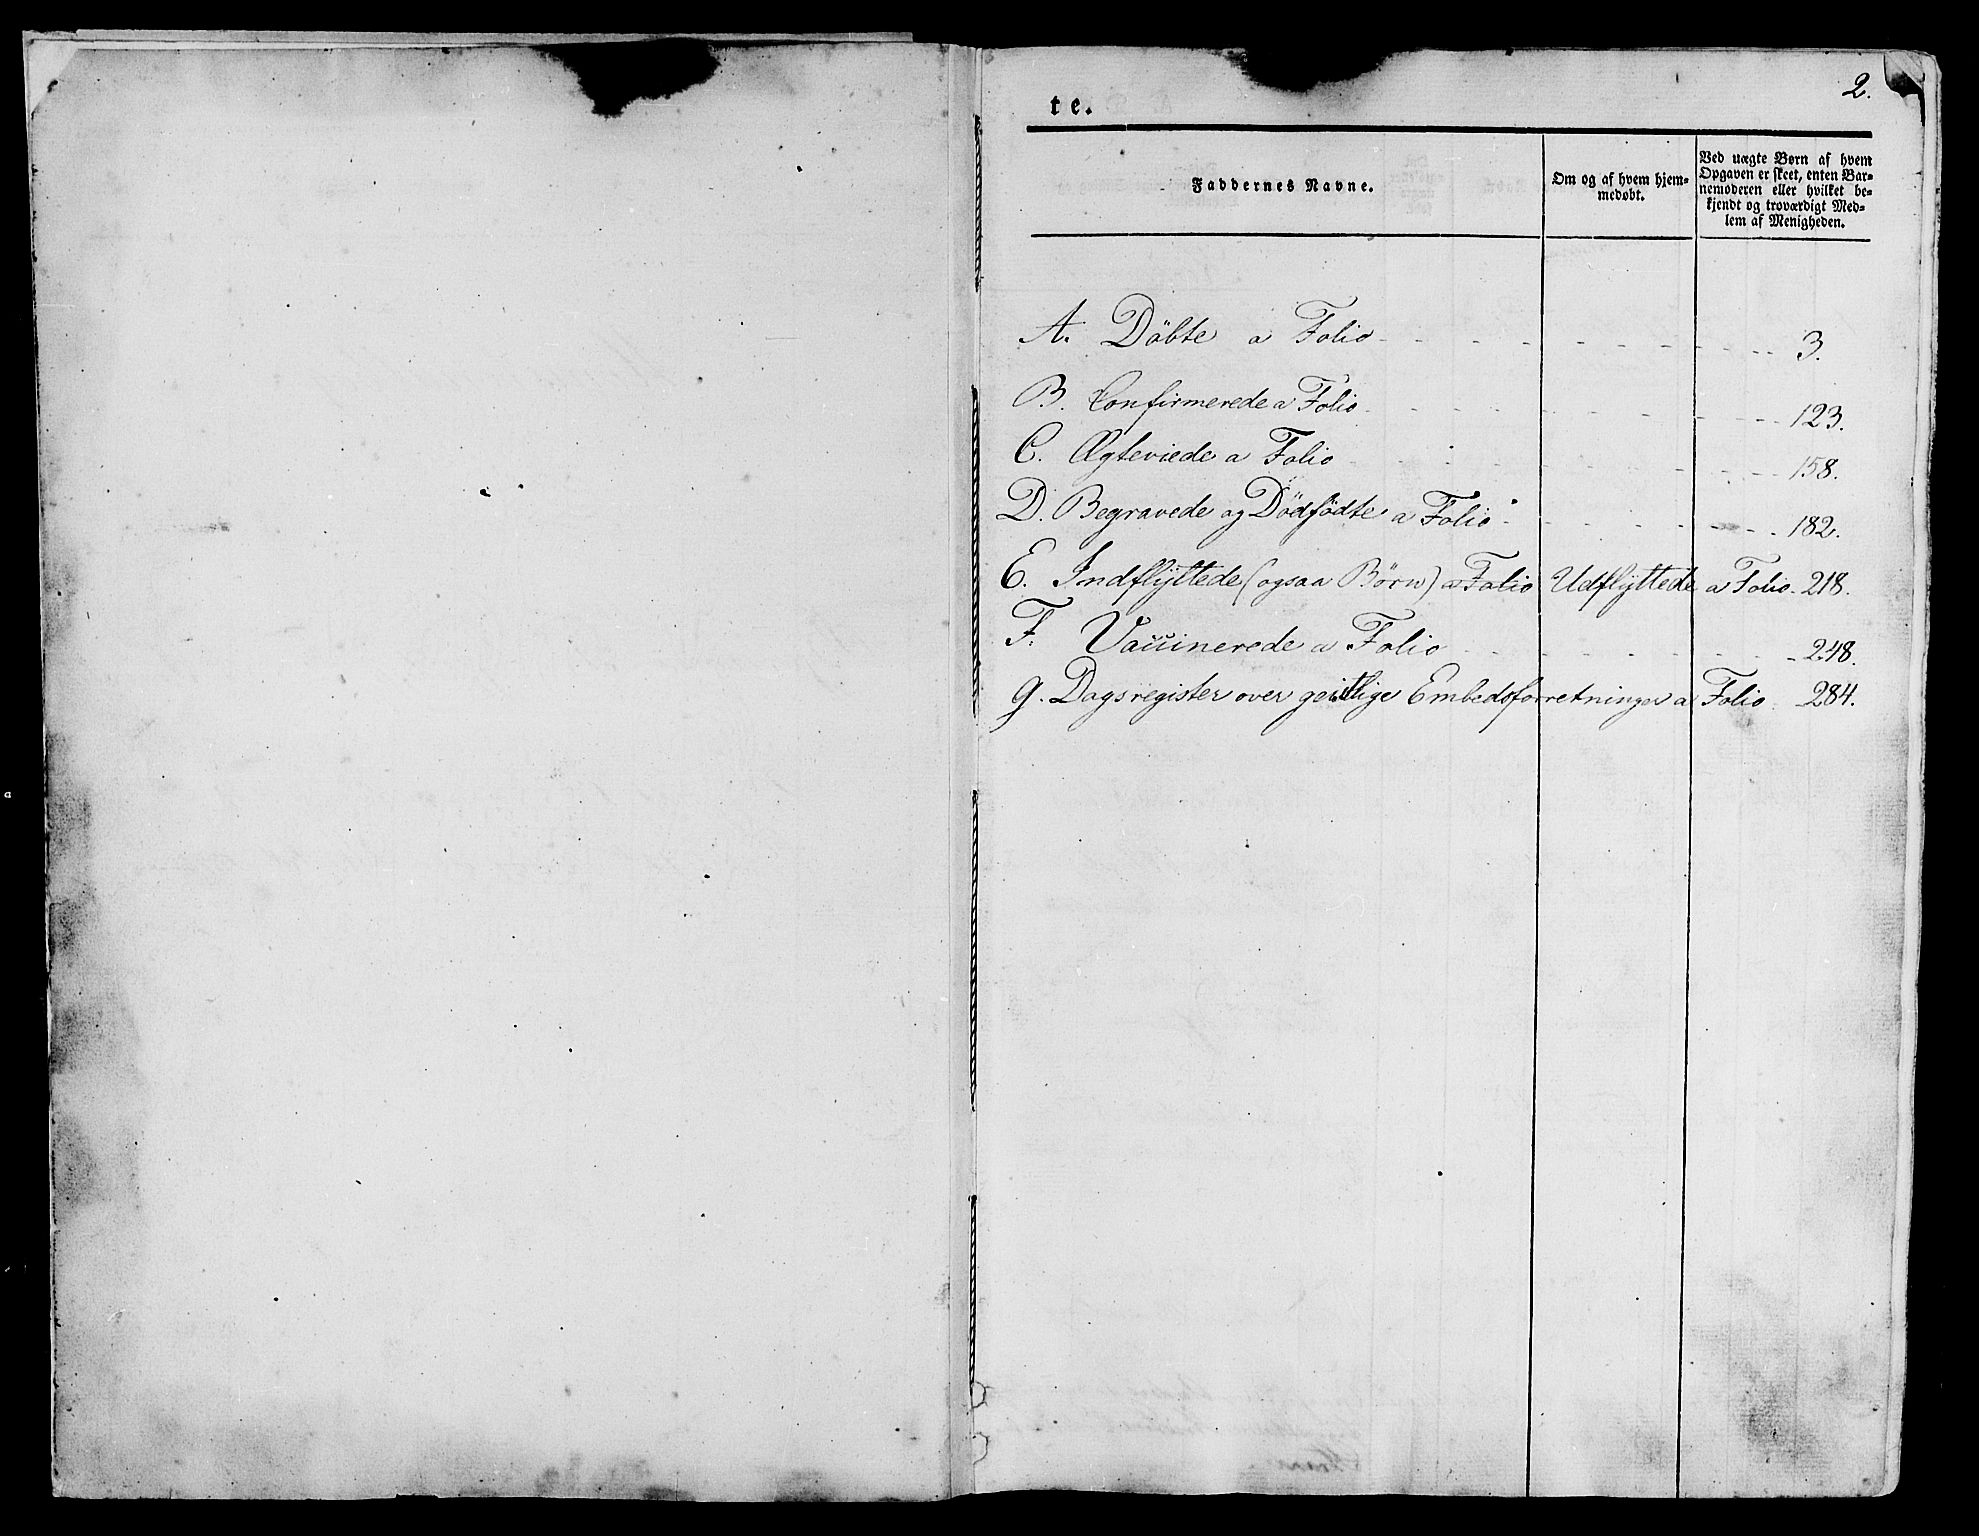 2.
te.
Faddernes Navne.
Om og af hvem hjem-
medøbt.
Ved uægte Børn af hvem
Opgaven er skeet, enten Bar-
nemoderen eller hvilket be-
kjendt og troværdigt Med-
lem af Menigheden.
A. Döbte a Folio 3.
B. Confirmerede a Folio 123.
C. Ægteviede a Folio 158.
D. Begravede og Dödfödte a Folio 182.
E. Indflyttede (ogsaa Børn) a Folio Udflyttede a Folio 218.
F. Vaccinerede a Folio 248.
G. Dagsregister over geistlige Embedsforretninger a Folio 284.